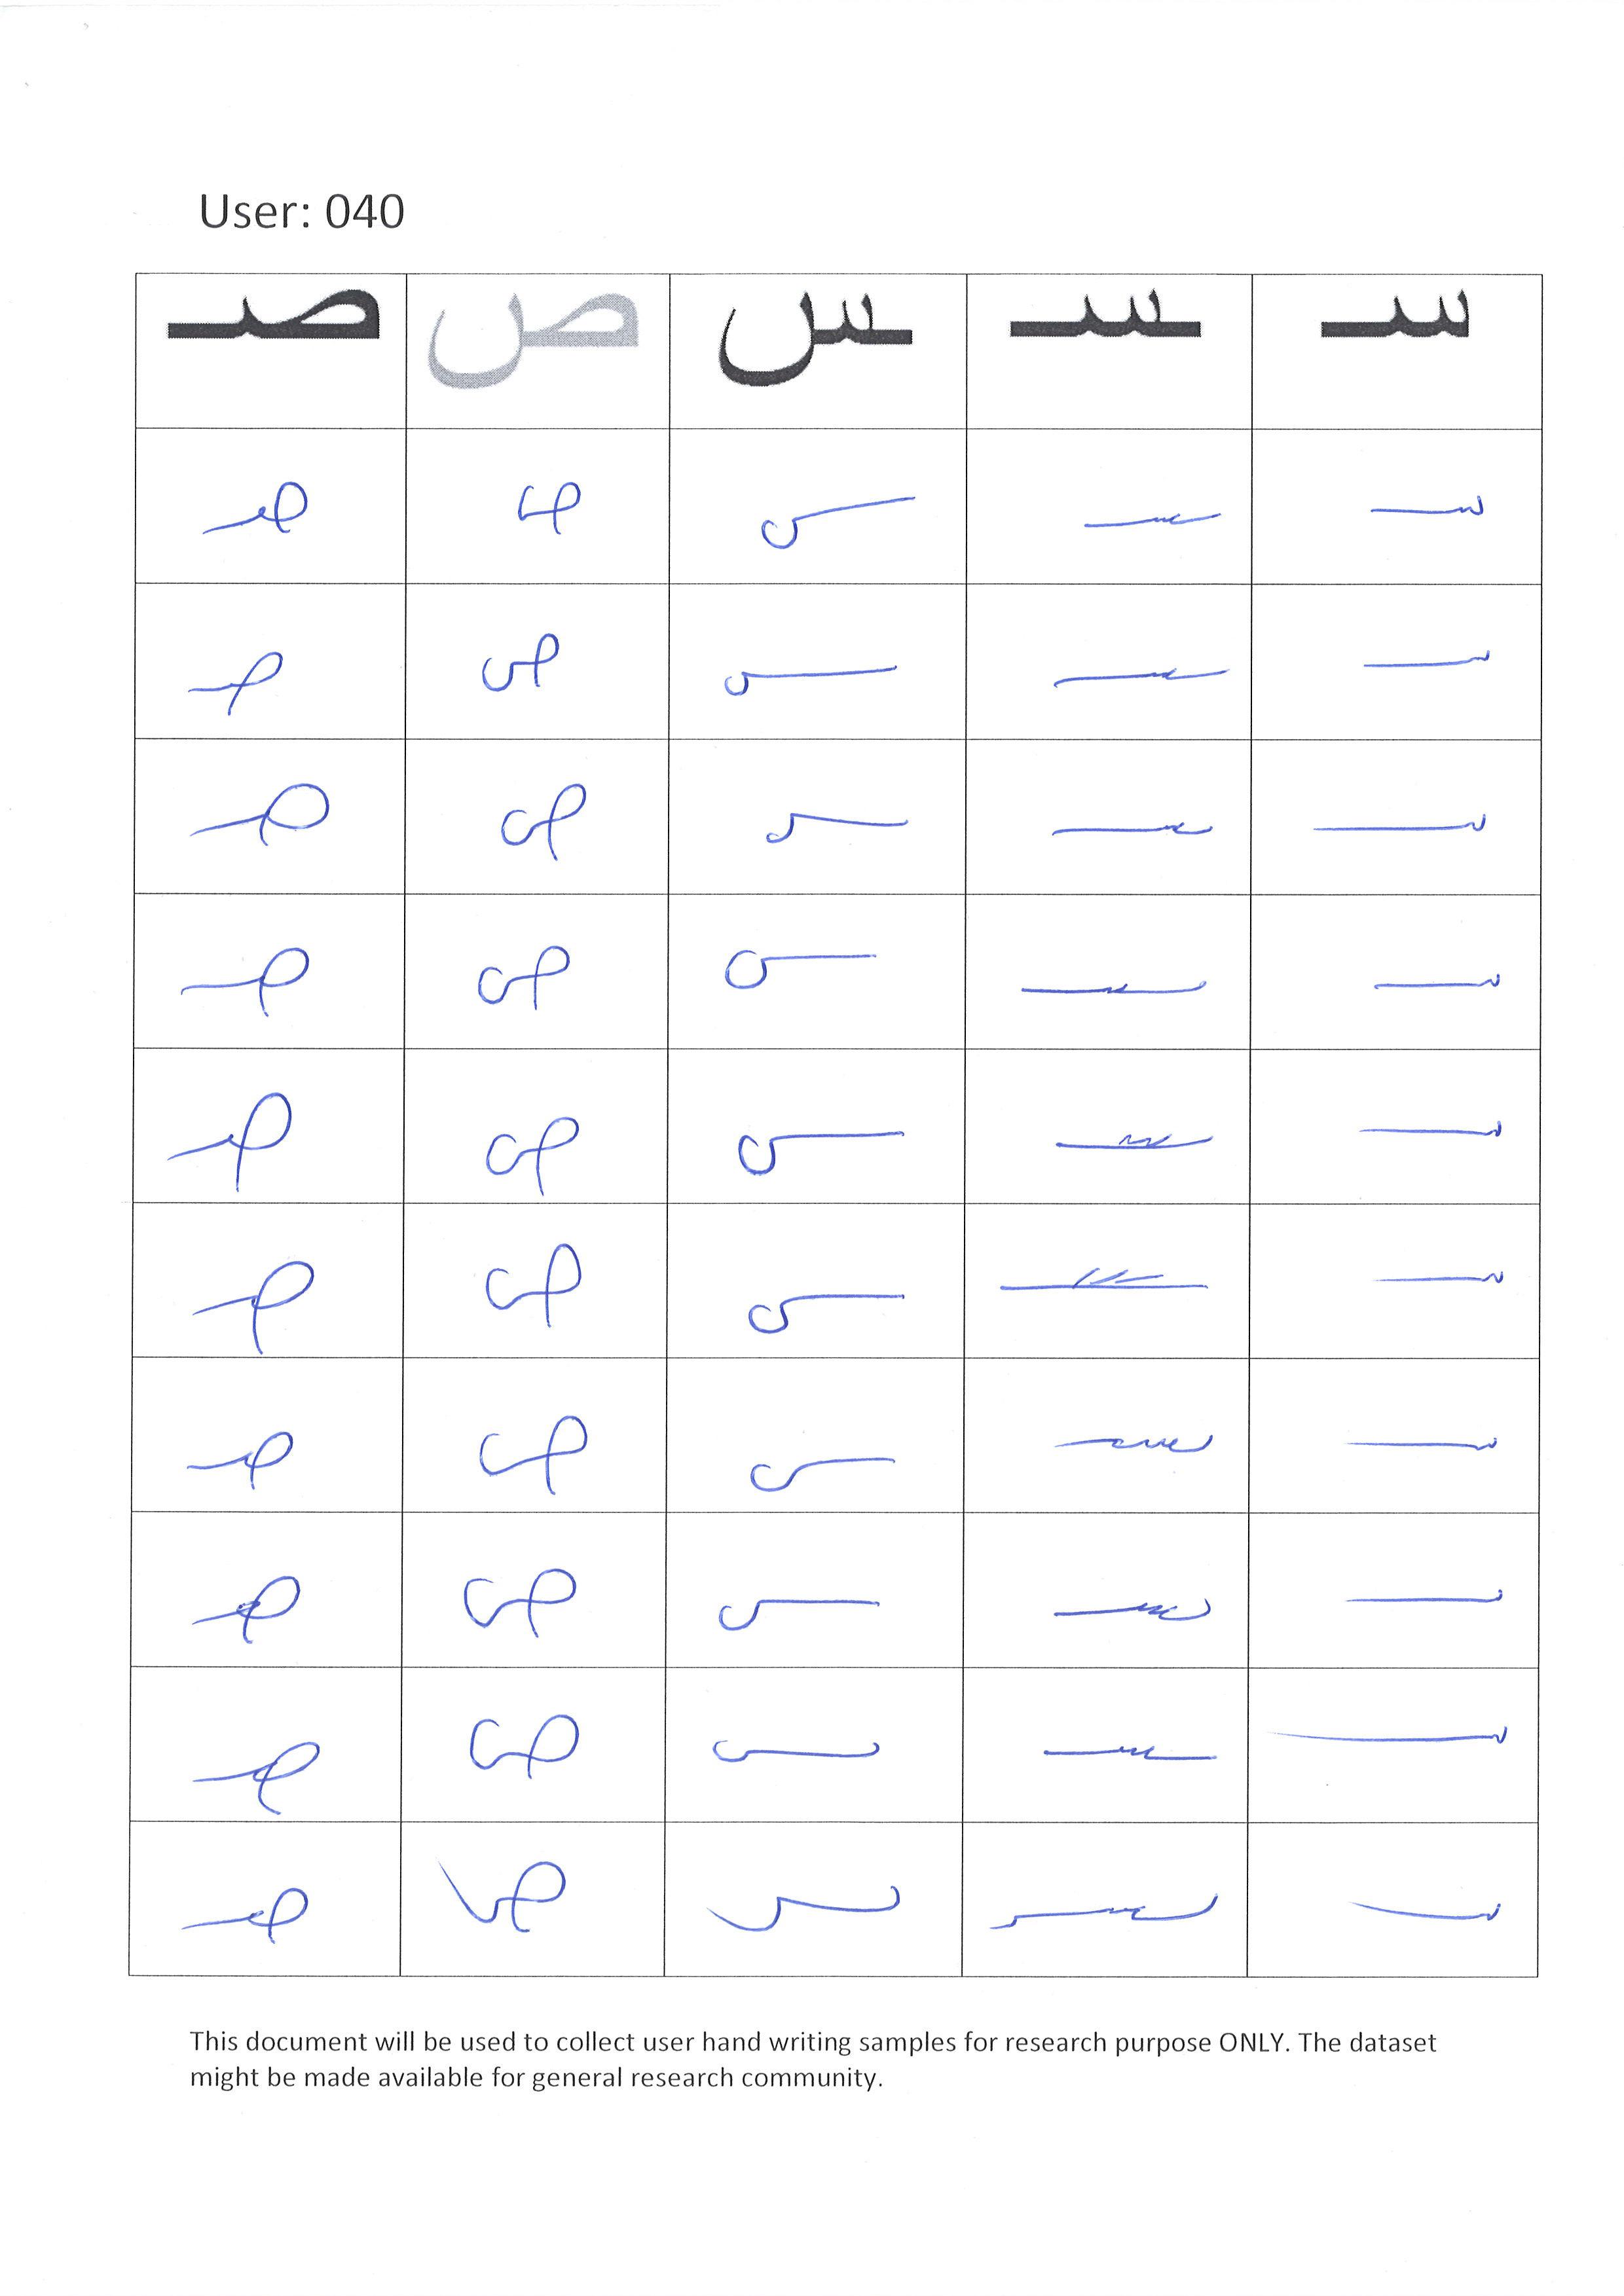 User: 040
سـ ـسـ ـس ص صـ
سـ ـسـ ـس ص صـ
سـ ـسـ ـس ص صـ
سـ ـسـ ـس ص صـ
سـ ـسـ ـس ص صـ
سـ ـسـ ـس ص صـ
سـ ـسـ ـس ص صـ
سـ ـسـ ـس ص صـ
سـ ـسـ ـس ص صـ
سـ ـسـ ـس ص صـ
سـ ـسـ ـس ص صـ
This document will be used to collect user hand writing samples for research purpose ONLY. The dataset
might be made available for general research community.